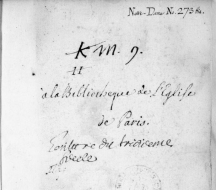 Notre-Dame N. 273 bis.
K m. 9.
A la Bibliotheque de l'Eglise
de Paris.
Ecriture du treizieme
siecle